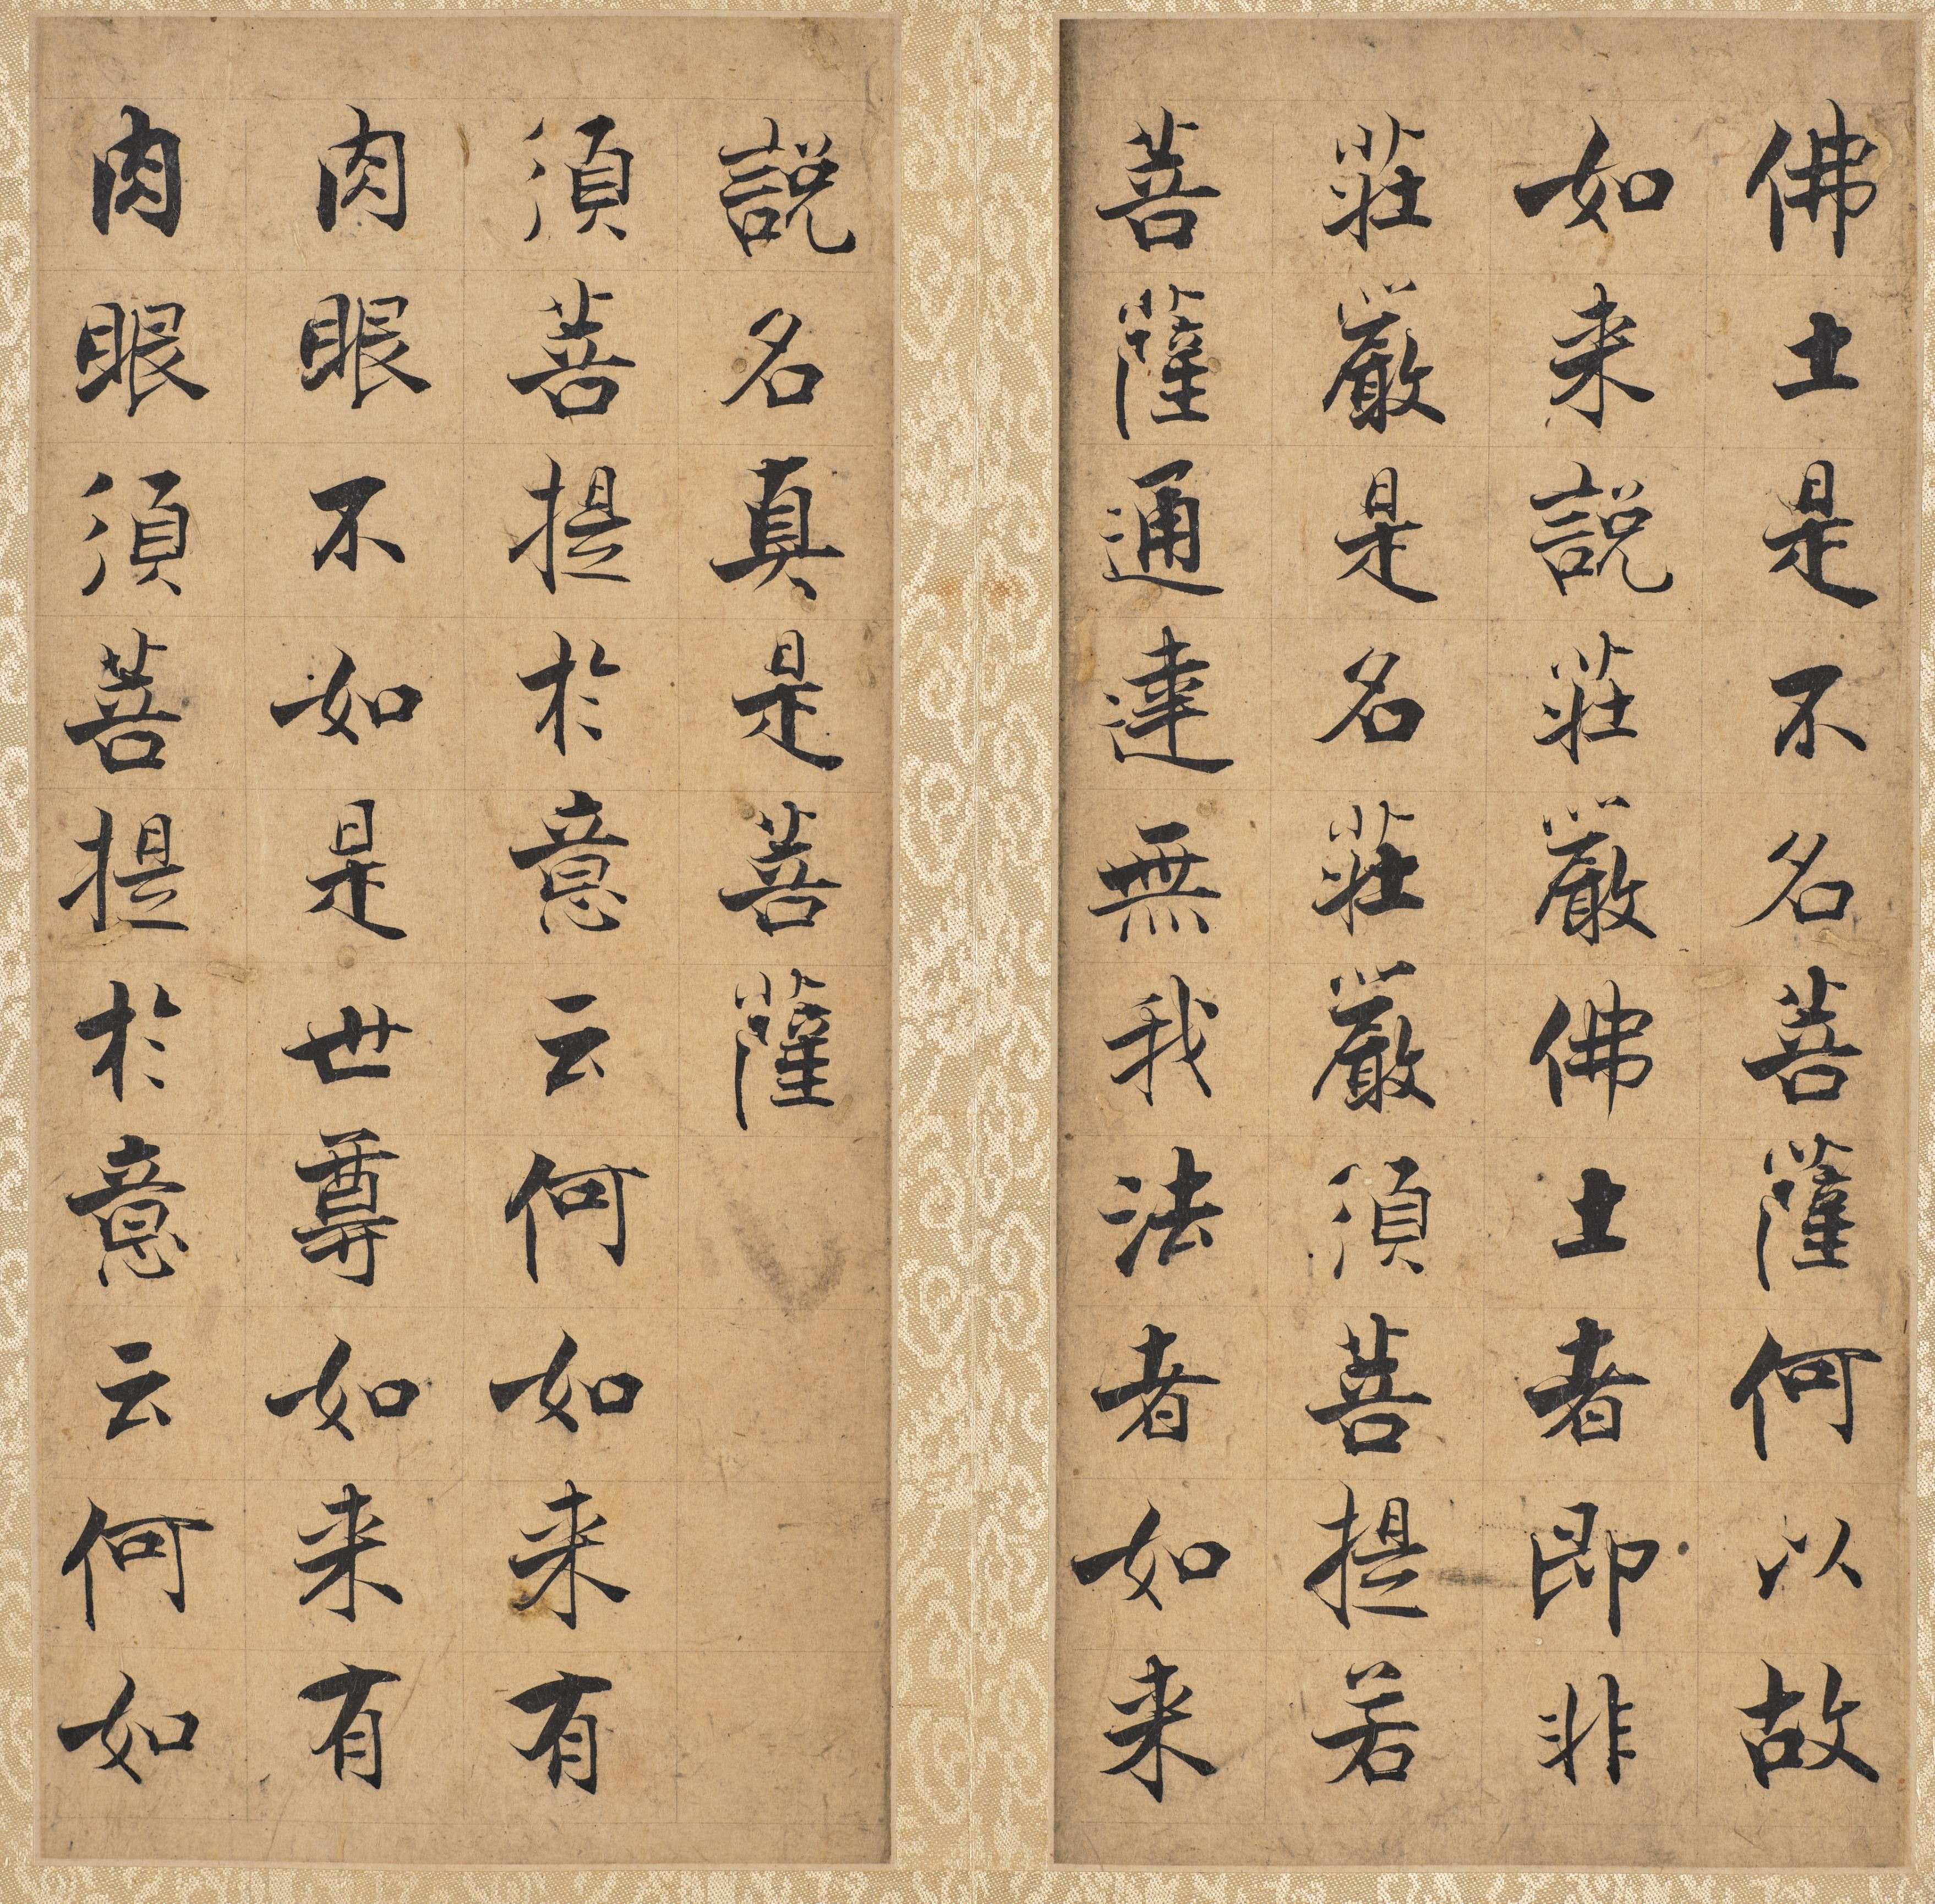 佛土是不名菩薩何以故
如来說莊嚴佛土者即非
莊嚴是名莊嚴須菩提若
菩薩通達無我法者如来
說名真是菩薩
須菩提於意云何如来有
肉眼不如是世尊如来有
肉眼須菩提於意云何如